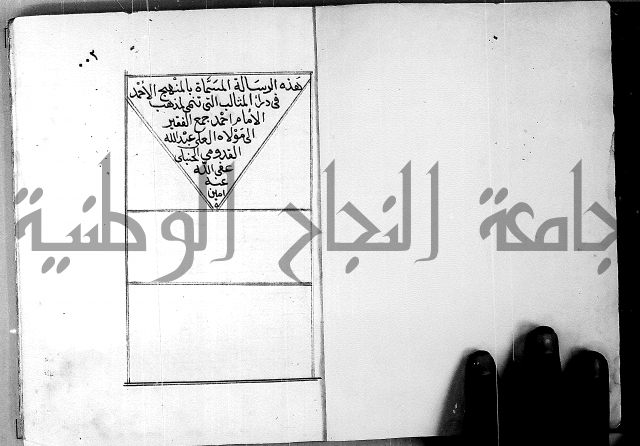 ٠٠٢
هذه الرسالة المسماة بالمنهج الأحمد
في درء المثالب التي تنمى لمذهب
الإمام احمد جمع الفقير
الى مولاه العلي عبد الله
القدومي الحنبلي
عفى الله
عنه
امين
جامعة النجاح الوطنية